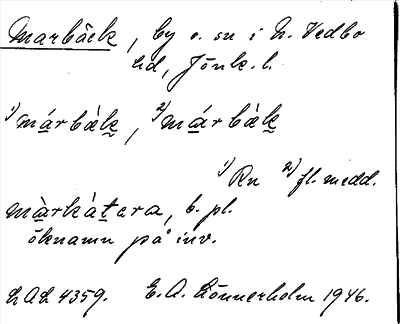 Marbäck, by o. sn i N. Vedbo
hd, Jönk. l.
1) márbæk, 2) márbæ̀k
1) Rn 2) fl. medd.
màrkátara, b. pl.
öknamn på inv.
LAL 4359. E. A. Lönnerholm 1946.